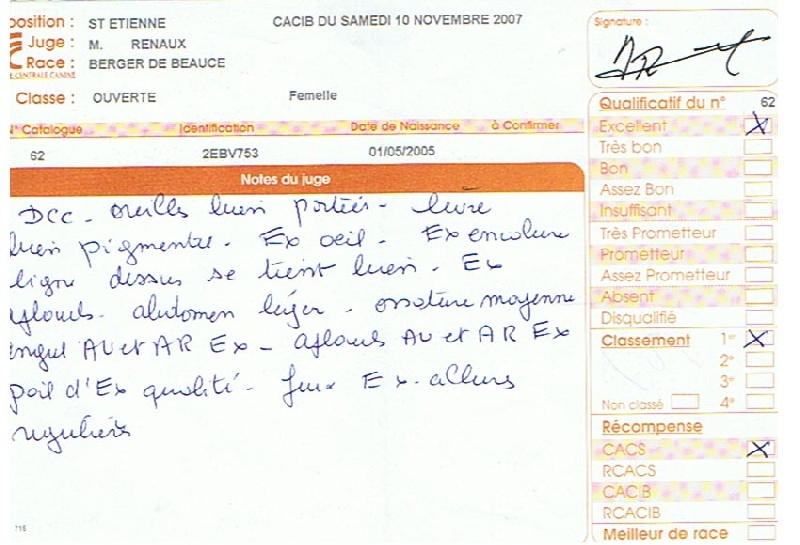 position : ST ETIENNE CACIB DU SAMEDI 10 NOVEMBRE 2007
Juge : M. RENAUX
Race : BERGER DE BEAUCE
E CENTRALE CANINE
Classe : OUVERTE Femelle
N° Catalogue Identification Date de Naissance à Confirmer
62 2EBV753 01/05/2005
Notes du juge
Dcc - oreilles bien portées - lèvre
bien pigmentée - Ex oeil - Ex encolure
ligne dessus se tient bien - Ex
aplombs - abdomen léger - ossature moyenne
angul AV et AR Ex - aplombs AV et AR Ex
poil d'Ex qualité - feux Ex - allures
régulières
716
Signature :
Qualificatif du n° 62
Excellent X
Très bon
Bon
Assez Bon
Insuffisant
Très Prometteur
Prometteur
Assez Prometteur
Absent
Disqualifié
Classement 1er X
2e
3e
Non classé 4e
Récompense
CACS X
RCACS
CACIB
RCACIB
Meilleur de race